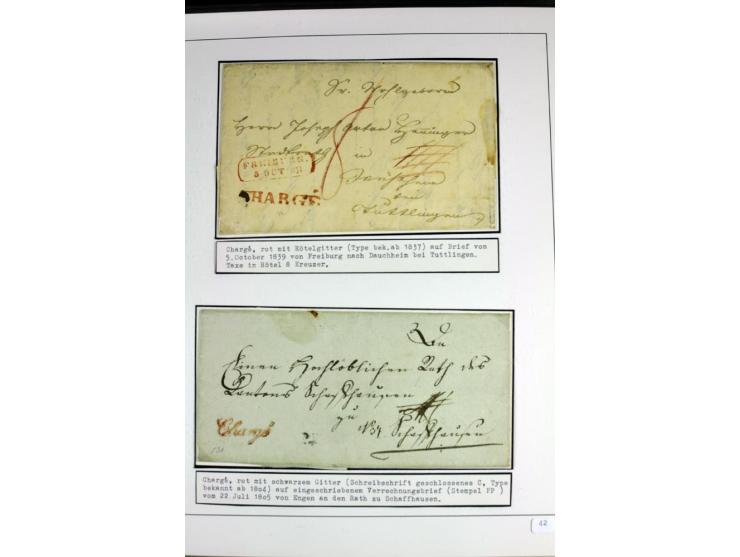 Sr. Wohlgeboren
Herrn Joseph Anton Henninger
in
bei
Tuttlingen
8
FREIBURG.
5 OCT
CHARGÉ
Chargé, rot mit Rötelgitter (Type bek.ab 1837) auf Brief von
5.October 1839 von Freiburg nach Dauchheim bei Tuttlingen.
Taxe in Rötel 8 Kreuzer.
Einen Hochlöblichen Rath des
Cantons Schaffhausen
zu
Schaffhausen
Chargé
Chargé, rot mit schwarzem Gitter (Schreibschrift geschlossenes C, Type
bekannt ab 1804) auf eingeschriebenem Verrechnungsbrief (Stempel PP )
vom 22.Juli 1805 von Engen an den Rath zu Schaffhausen.
42